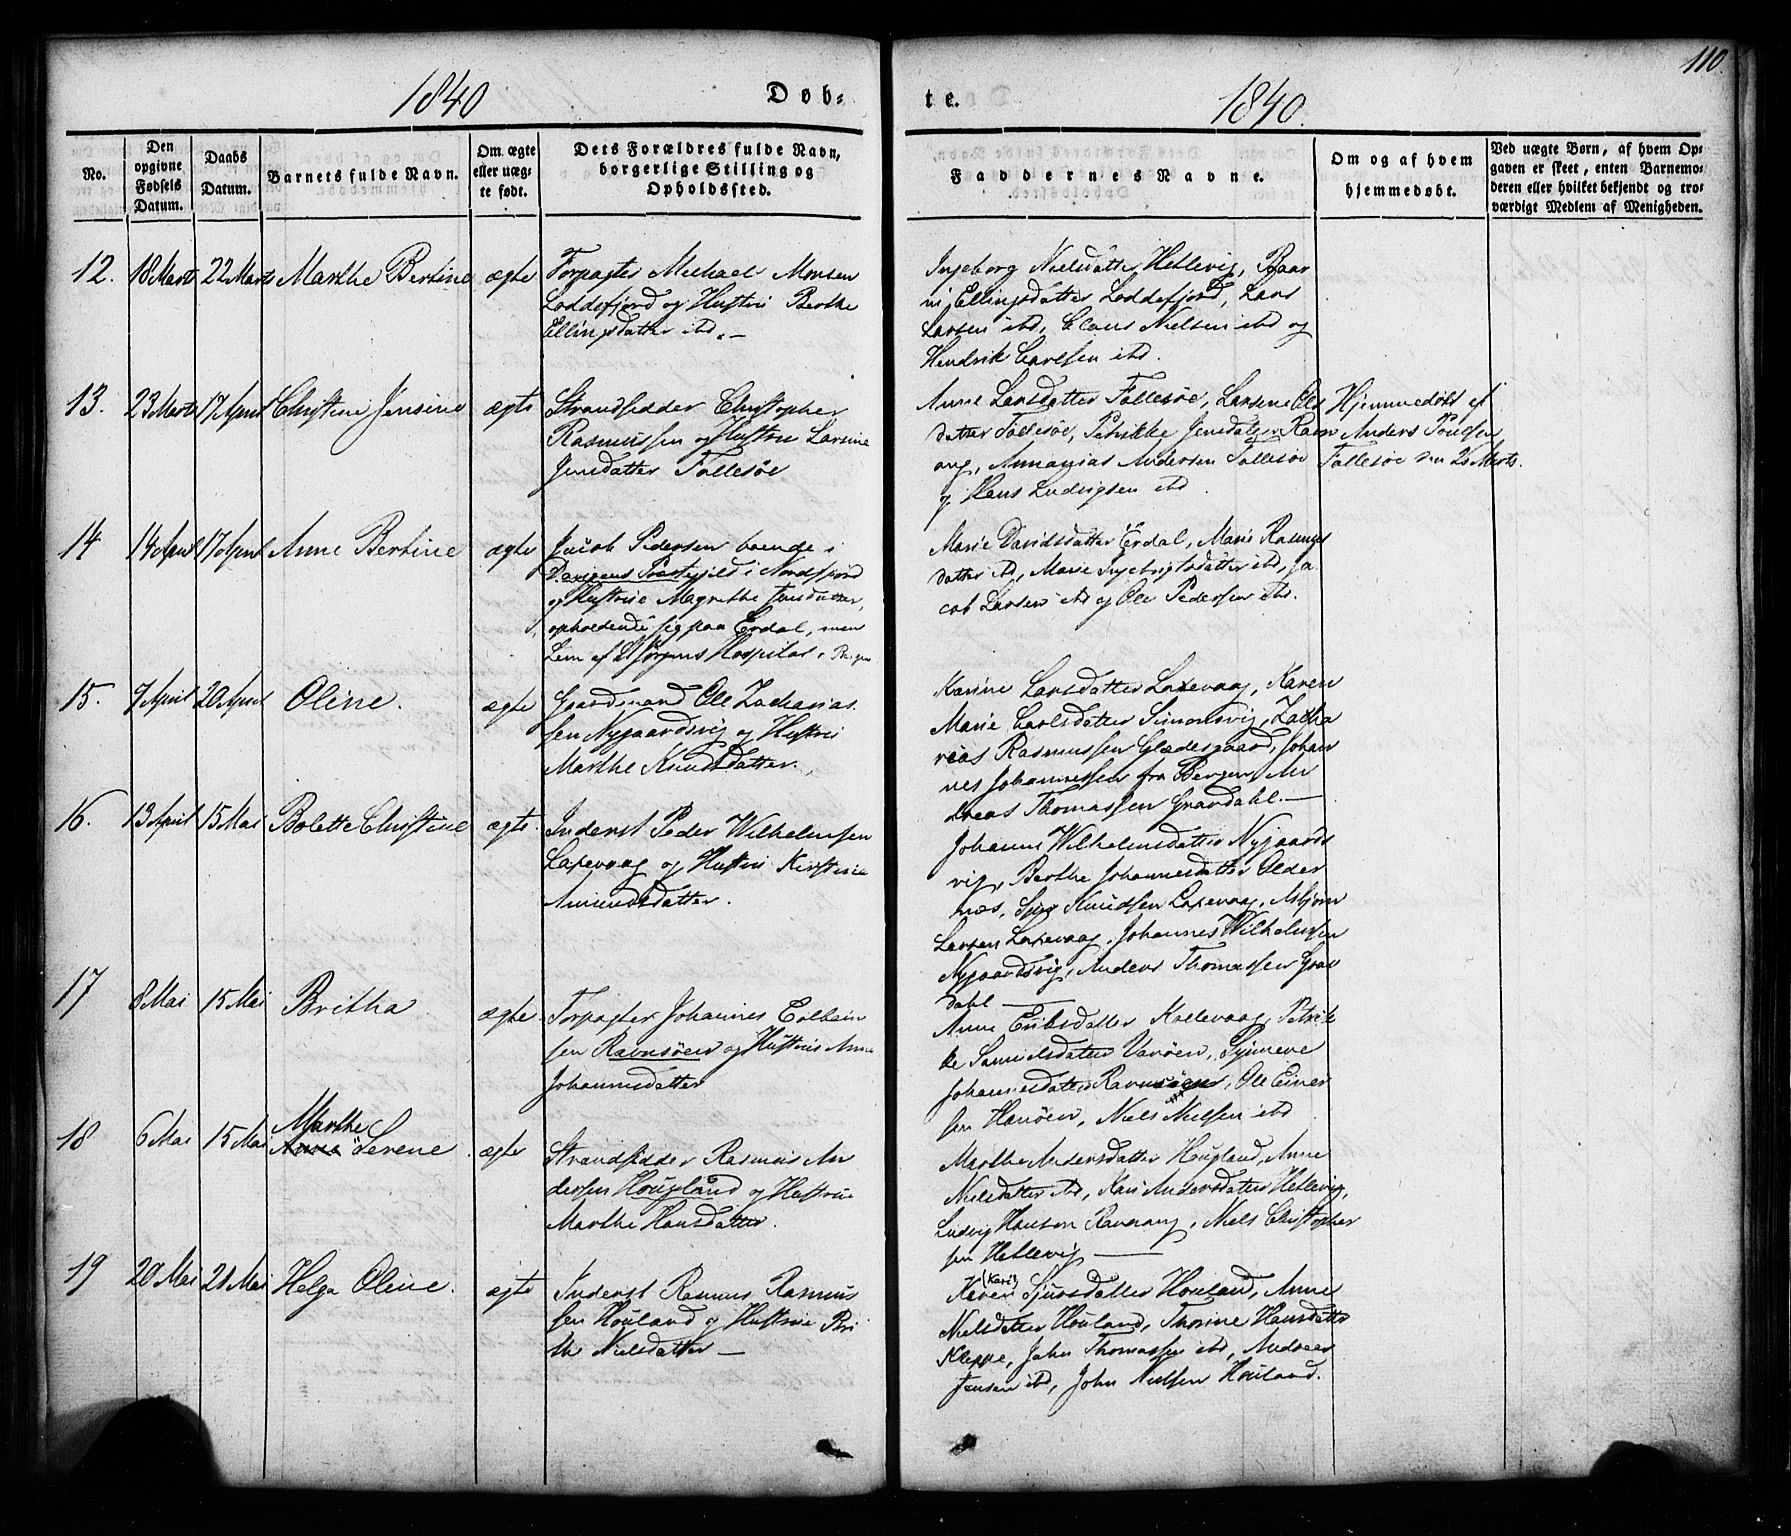 110.
1840 Døb-
te. 1840.
No.
Den opgivne Fødsels Datum.
Daabs Datum.
Barnets fulde Navn.
Om ægte eller uæg-te født.
Dets Forældres fulde Navn, borgerlige Stilling og Opholdssted.
Faddernes Navne.
Om og af hvem hjemmedøbt.
Ved uægte Børn, af hvem Op-
gaven er skeet, enten Barnemo-
deren eller hvilket bekjendt og tro-
værdigt Medlem af Menigheden.
12. 18 Marts 22 Marts Marthe Bertine ægte Forpagter Michael Monsen
Loddefjord og Hustru Berthe
Ellingsdatter ibd. –
Ingeborg Nielsdatter Hetlevig, Baar
ni Ellingsdatter Loddefjord, Lars
Larsen ibd, Claus Nielsen ibd og
Hendrik Carlsen ibd.
13. 23 Marts 17 April Christine Jensine ægte Strandsidder Christopher
Rasmussen og Hustru Larsine
Jensdatter Follesøe
Anne Larsdatter Follesøe, Larsine Ols
datter Follesøe, Petrikke Jensdatter Ravn
ang, Annanias Andersen Follesøe
og Hans Ludvigsen ibd.
Hjemmedøbt af
Anders Poulsen
Follesøe den 25 Marts.
14 14 April 17 April Anne Bertine ægte Jacob Pedersen boende i
Davigens Præstegjeld i Nordfjord
og Hustrue Magrethe Jensdatter,
opholdende sig paa Erdal, men
Lem af St Jørgens Hospital i Bergen
Marie Davidsdatter Erdal, Marie Rasmus
datter ibd, Marie Ingebrigtsdatter ibd, Ja
cob Larsen ibd og Ole Pedersen ibd.
15. 7 April 20 April Oline. ægte Gaardmand Ole Zacharias
sen Nygaardsvig og Hustru
Marthe Knudsdatter.
Karine Larsdatter Laxevaag, Karen
Marie Carlsdatter Simonsvig, Zacha
rias Rasmussen Glædesgaard, Johan
nes Johannessen fra Bergen, An
dreas Thomassen Gravdahl. –
16. 13 April 15 Mai Bolette Christine ægte Inderst Peder Wilhelmsen
Laxevaag og Hustru Kirstine
Amundsdatter.
Johanne Wilhelmsdatter Nygaards
vig, Berthe Johannesdatter Older
næs, Knudsen Laxevaag, Asbjørn
Larsen Laxevaag, Johannes Wilhelmsen
Nygaardsvig, Anders Thomassen Grav
dahl –
17 8 Mai 15 Mai Britha ægte Forpagter Johannes Colbein
sen Ravnsøen og Hustrue Anne
Johannesdatter
Anne Eriksdatter Kollevaag, Petrik
ke Samuelsdatter Varøen, Synneve
Johannesdatter Ravnsøen, Ole Einer
sen Hanøen, Niels Nielsen ibd
18 6 Mai 15 Mai Marthe
Anne Serene ægte Strandsidder Rasmus An
dersen Hougland og Hustrue
Marthe Hansdatter.
Marthe Andersdatter Hougland, Anne
Nielsdatter ibd, Kari Andersdatter Hetlevig,
Ludvig Hansen Ravnang, Niels Christopher
sen Hetlevig –
19 20 Mai 21 Mai Helga Oline. ægte Inderst Rasmus Rasmus
sen Houland og Hustrue Bri
the Nielsdatter –
(Kari)
Karen Sjursdatter Houland, Anne
Nielsdatter Houland, Thorine Hansdatter
Kleppe, John Thomassen ibd, Andreas
Jensen ibd, John Nielsen Houland.